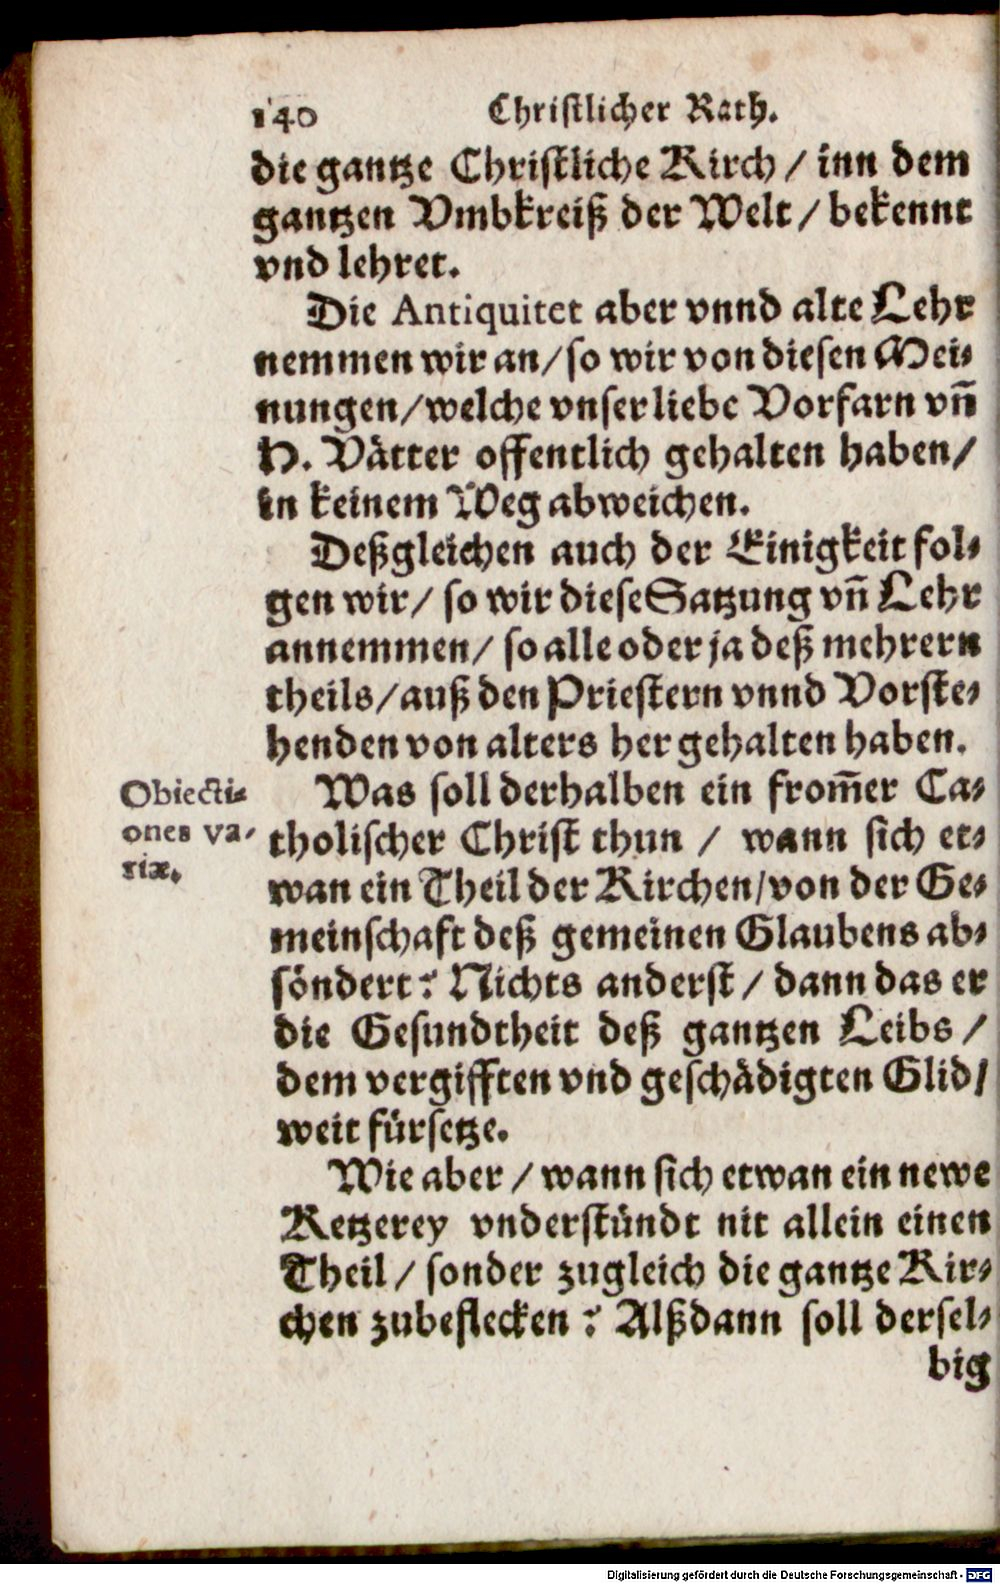 140 Christlicher Rath.
die gantze Christliche Kirch / inn dem
gantzen Vmbkreiß der Welt / bekennt
vnd lehret.
Die Antiquitet aber vnnd alte Lehr
nemmen wir an / so wir von diesen Mei-
nungen / welche vnser liebe Vorfarn vn̄
H. Vätter offentlich gehalten haben /
in keinem Weg abweichen.
Deßgleichen auch der Einigkeit fol-
gen wir / so wir diese Satzung vn̄ Lehr
annemmen / so alle oder ja deß mehrern
theils / auß den Priestern vnnd Vorste-
henden von alters her gehalten haben.
Obiecti-
ones va-
riæ.
Was soll derhalben ein from̄er Ca-
tholischer Christ thun / wann sich et-
wan ein Theil der Kirchen / von der Ge-
meinschaft deß gemeinen Glaubens ab-
söndert? Nichts anderst / dann das er
die Gesundtheit deß gantzen Leibs /
dem vergifften vnd geschädigten Glid /
weit fürsetze.
Wie aber / wann sich etwan ein newe
Ketzerey vnderstündt nit allein einen
Theil / sonder zugleich die gantze Kir-
chen zubeflecken? Alßdann soll dersel-
big
Digitalisierung gefördert durch die Deutsche Forschungsgemeinschaft - DFG